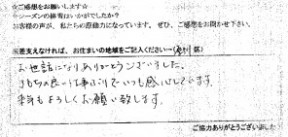 ☆ご感想をお願いします☆
シーズンの終着はいかがでしたか?
お客様の声が、私たちの原動力になっています。ぜひ、ご感想をお聞かせ下さい。
※差支えなければ、お住まいの地域をご記入ください→( 部)
お世話になりありがとうございました。
うちの良い仕事ぶりでいつも感心しています。
来年もよろしくお願い致します。
ご協力ありがとうございました